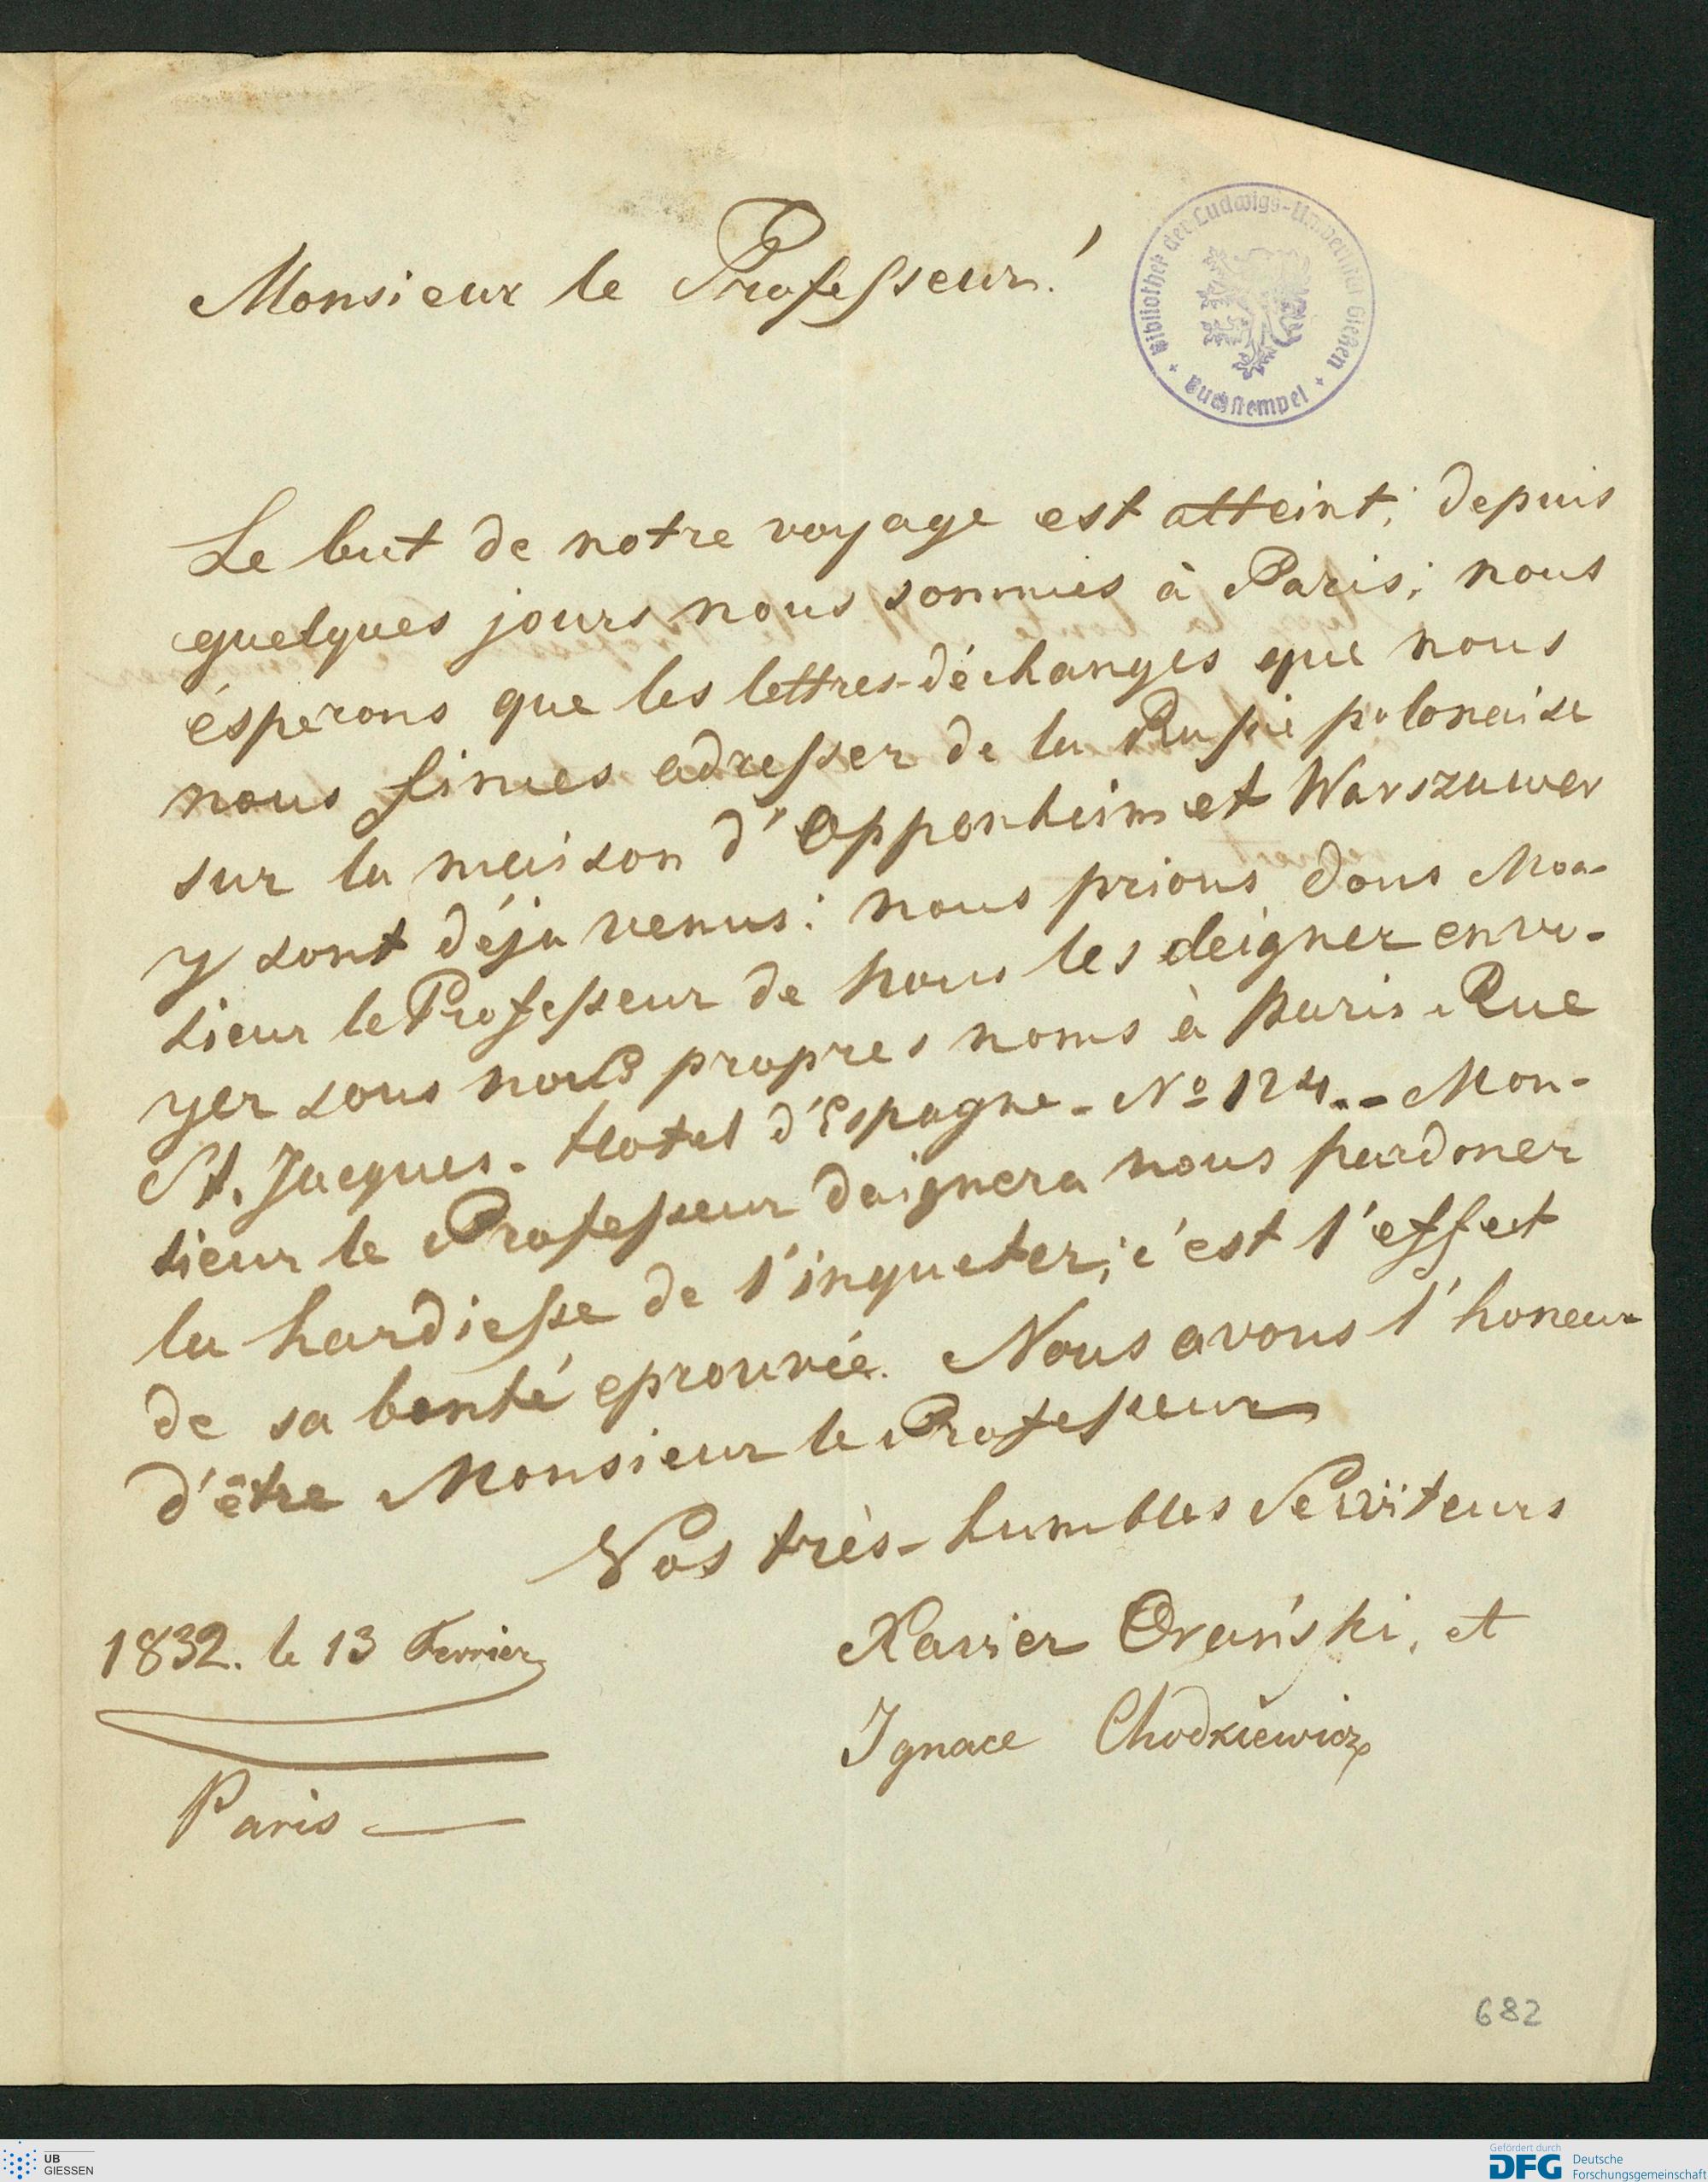 Monsieur le Professeur!
Bibliothek der Ludwigs-Universität Gießen
Buchstempel
Le but de notre voyage est atteint; depuis
quelques jours nous sommes à Paris; nous
ésperons que les lettres-déchanges que nous
nous fimes adresser de la Russie polonaise
sur la maison d'Oppenheim et Warszawer
y sont déja venus: nous prions donc Mon-
sieur le Professeur de nous les deigner envo-
yer sous nos propres noms à Paris Rue
St. Jacques - Hotel d'Espagne - No 124 .- Mon-
sieur le Professeur daignera nous pardoner
la hardiesse de l'inqueter; c'est l'effect
de sa bonté eprouvée. Nous avons l'honeur
d'être Monsieur le Professeur
Vos très-humbles Serviteurs
Xavier Orański, et
Ignace Chodkiewicz
1832. le 13 Fevrier
Paris
682
UB
GIESSEN
Gefördert durch
DFG Deutsche
Forschungsgemeinschaft